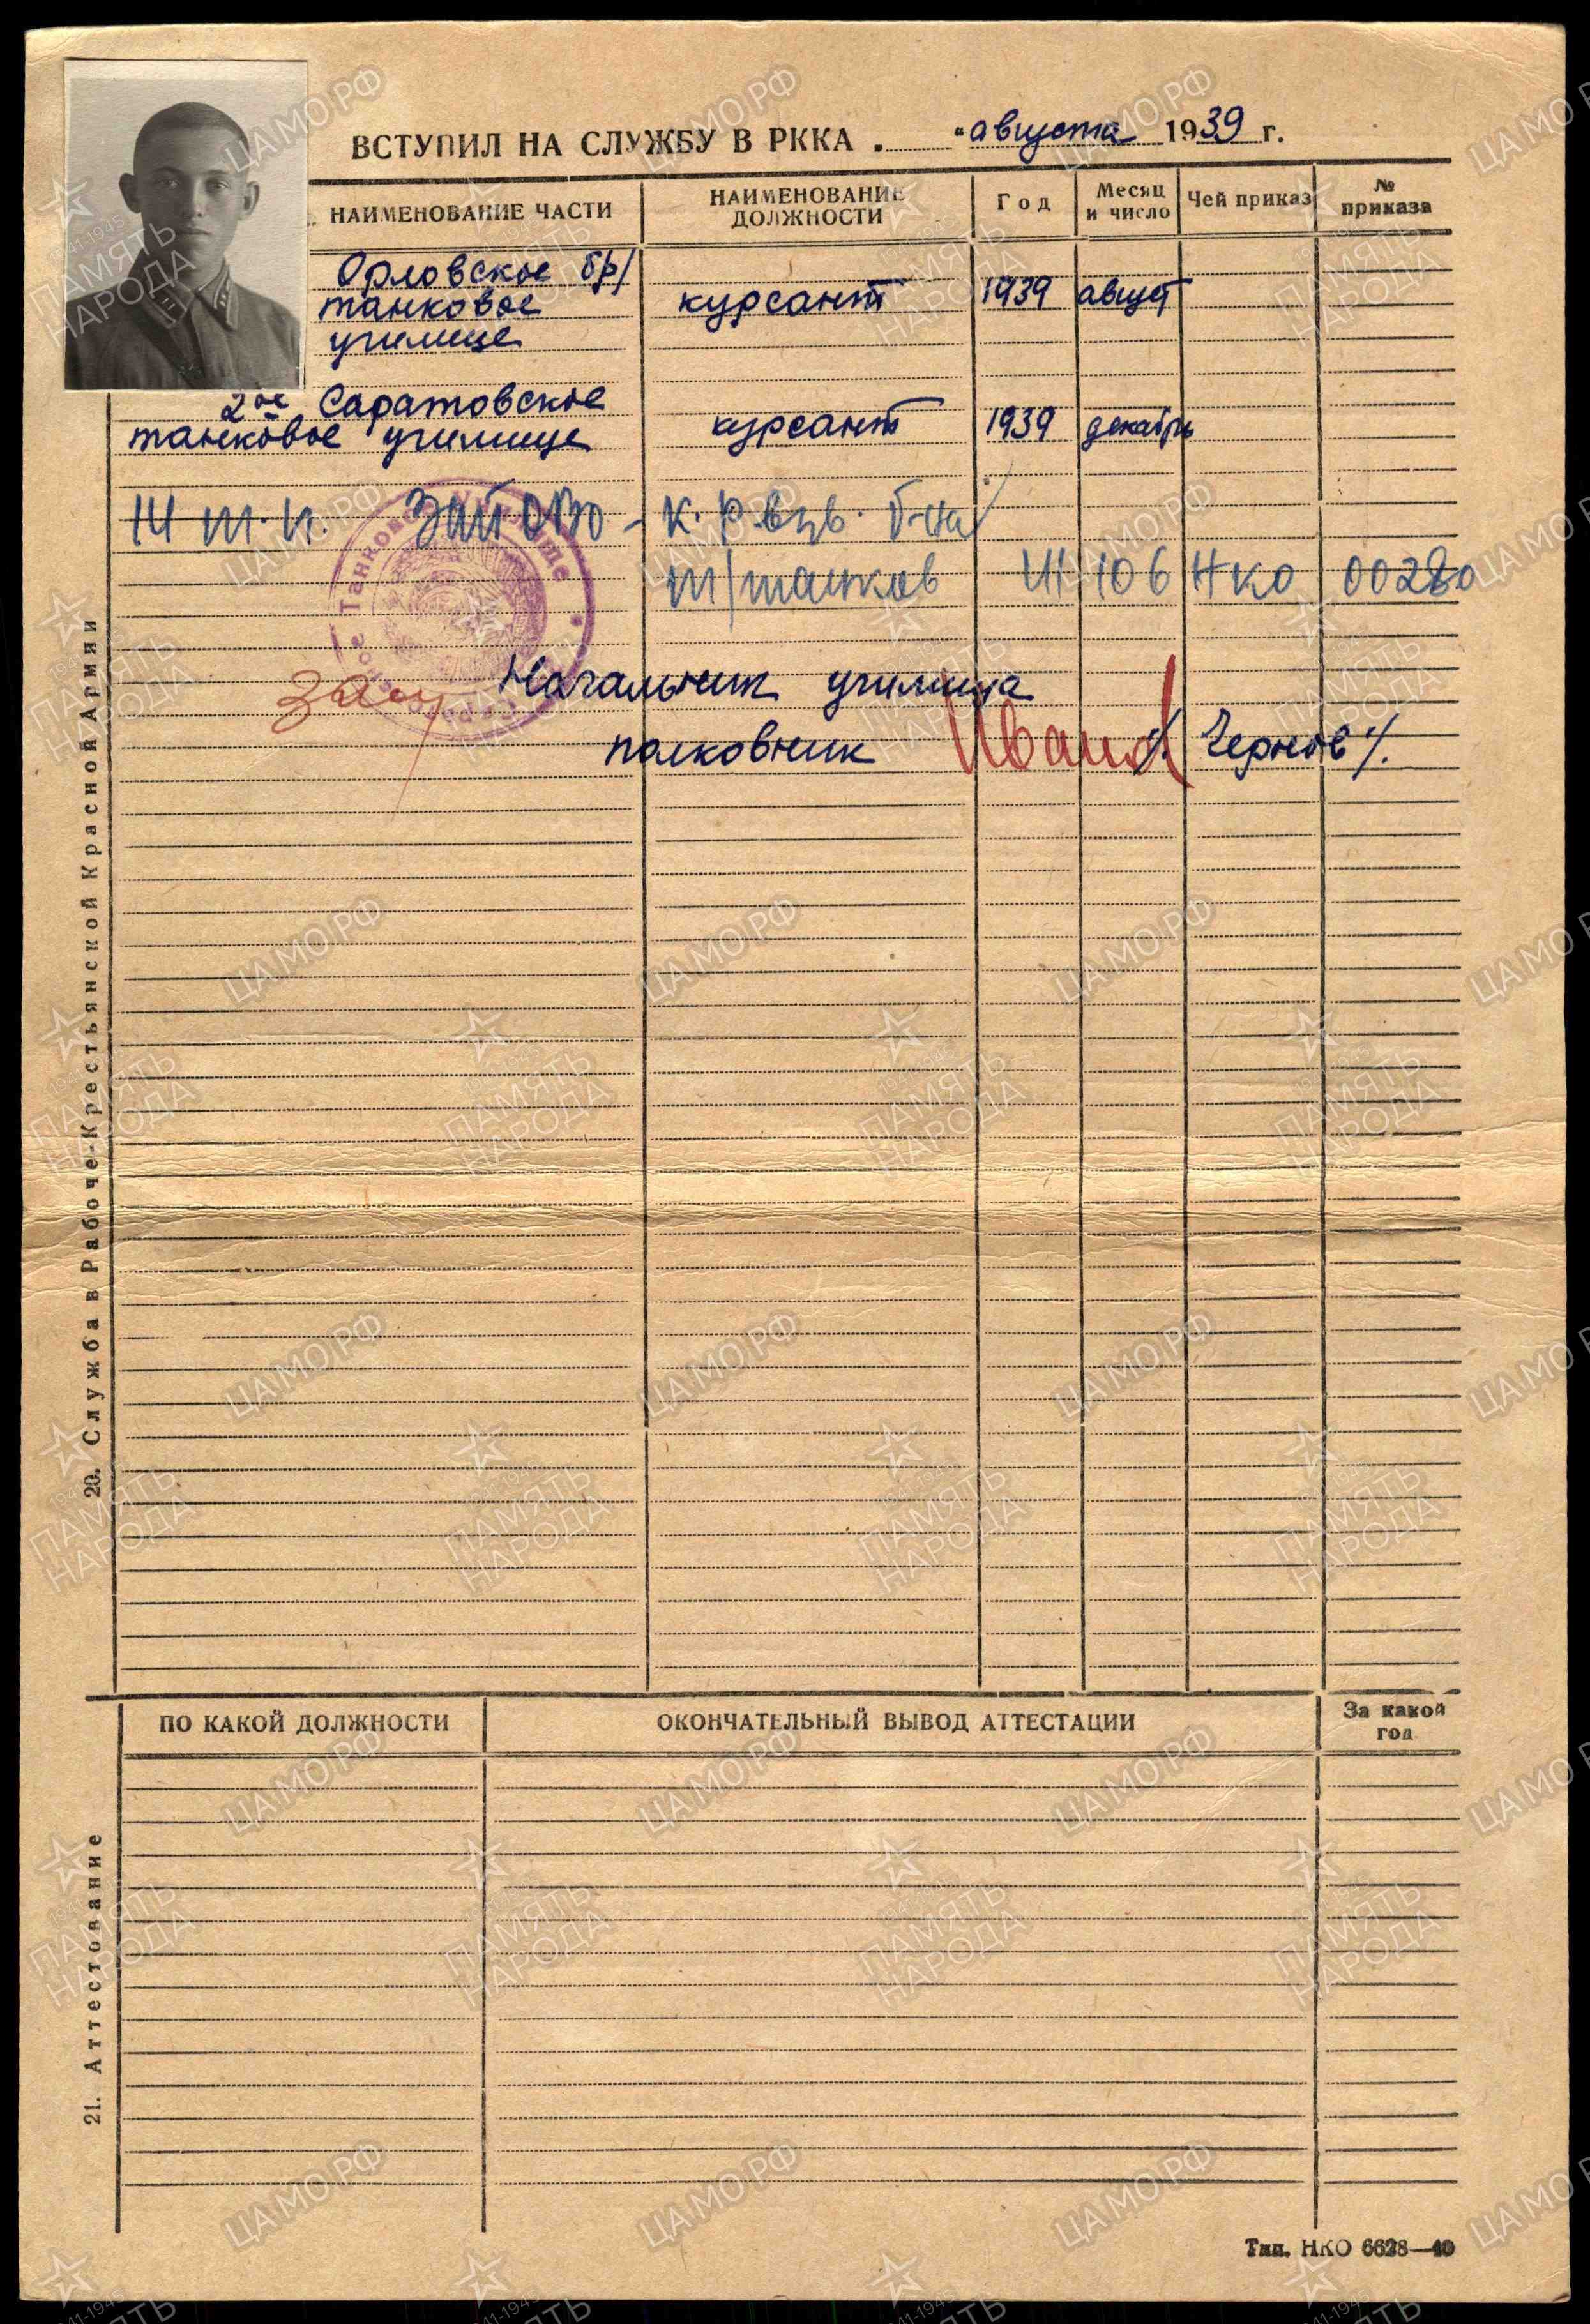 ВСТУПИЛ НА СЛУЖБУ В РККА . " августа 1939 г.
НАИМЕНОВАНИЕ ЧАСТИ НАИМЕНОВАНИЕ ДОЛЖНОСТИ Год Месяц и число Чей приказ № приказа
Орловское бр/
танковое курсант 1939 август
училище
2ое Саратовское
танковое училище курсант 1939 декабрь
14 т.п. ЗапОВО - к. взв. б-на
т/танков 41 106 НКО 00280
зам Начальник училища
полковник Иванов /. Чернов /.
20. Служба в Рабоче-Крестьянской Красной Армии
ПО КАКОЙ ДОЛЖНОСТИ ОКОНЧАТЕЛЬНЫЙ ВЫВОД АТТЕСТАЦИИ За какой год
21. Аттестование
Тип. НКО 6628—40
ЦАМО РФ
ПАМЯТЬ НАРОДА
1941-1945